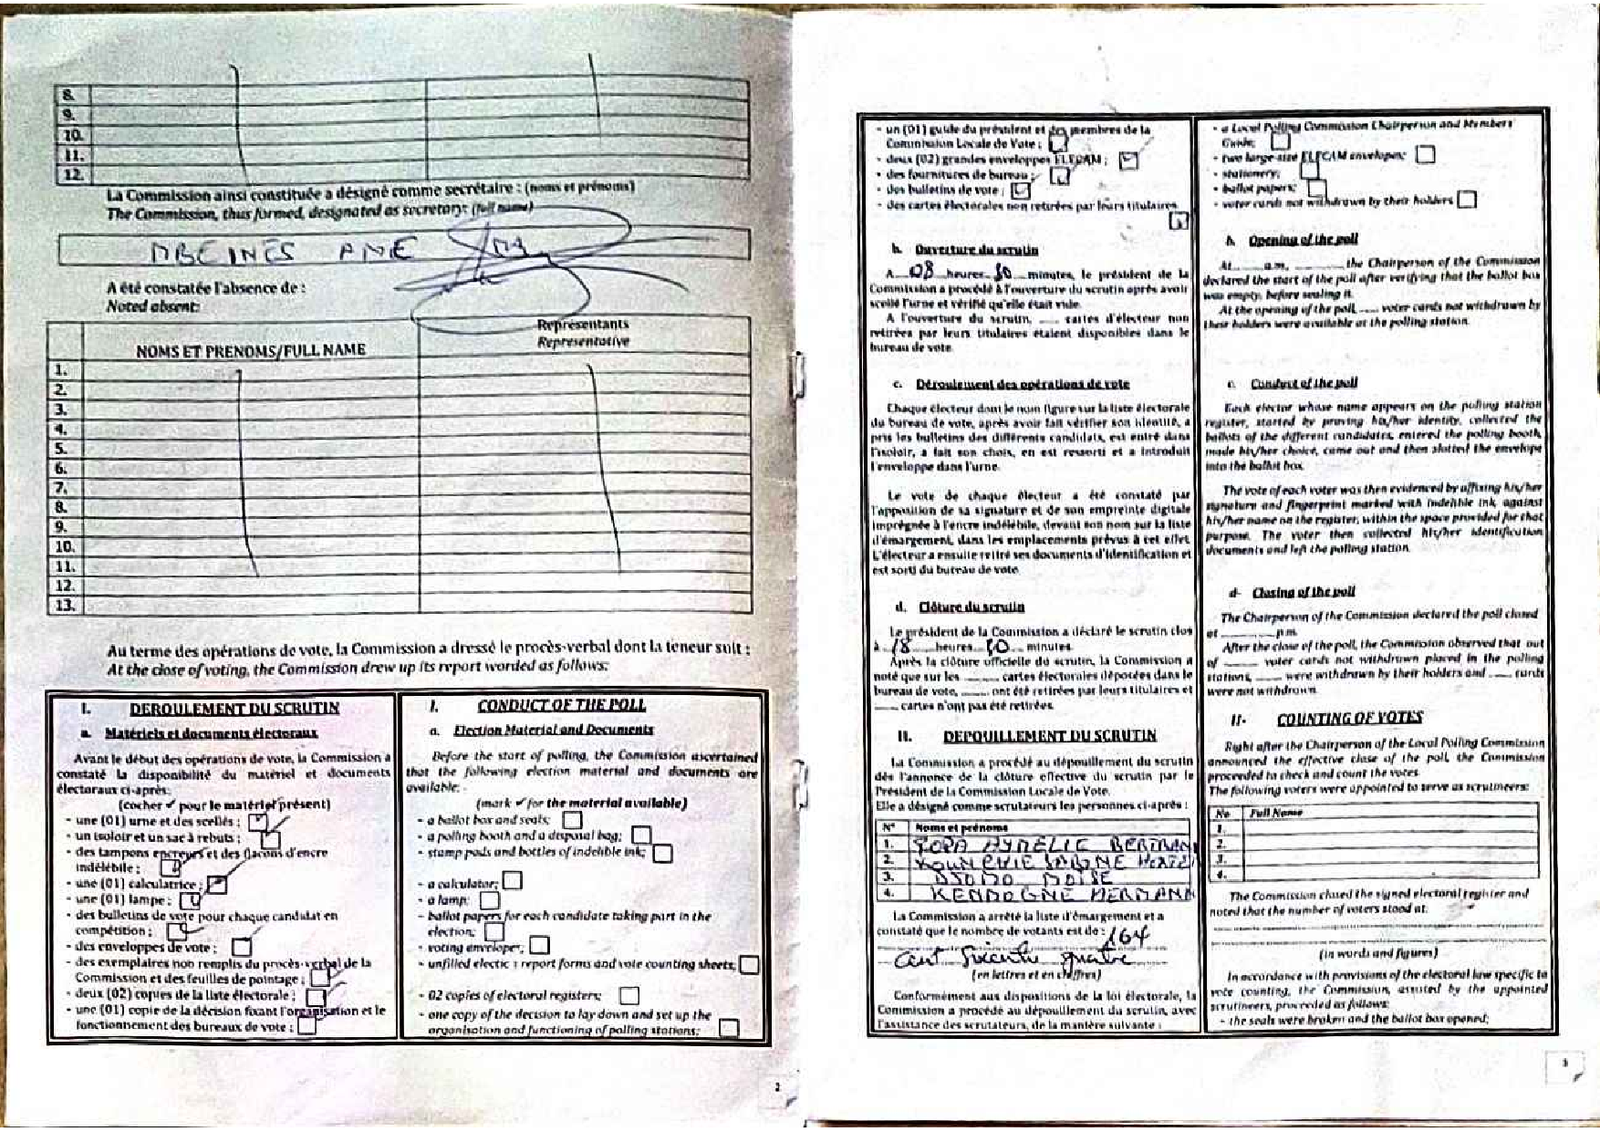 8.
9.
10.
11.
12.
La Commission ainsi constituée a désigné comme secrétaire : (noms et prénoms)
The Commission, thus formed, designated as secretary: (full name)
A été constatée l'absence de :
Noted absent:
NOMS ET PRENOMS/FULL NAME
Représentants
Representative
1.
2.
3.
4.
5.
6.
7.
8.
9.
10.
11.
12.
13.
Au terme des opérations de vote, la Commission a dressé le procès-verbal dont la teneur suit :
At the close of voting, the Commission drew up its report worded as follows:
I. DEROULEMENT DU SCRUTIN
a. Matériels et documents électoraux
Avant le début des opérations de vote, la Commission a
constaté la disponibilité du matériel et documents
électoraux ci-après:
(cocher ✓ pour le matériel présent)
- une (01) urne et des scellés ;
- un isoloir et un sac à rebuts ;
- des tampons encreurs et des flacons d'encre
indélébile ;
- une (01) calculatrice ;
- une (01) lampe ;
- des bulletins de vote pour chaque candidat en
compétition ;
- des enveloppes de vote ;
- des exemplaires non remplis du procès-verbal de la
Commission et des feuilles de pointage ;
- deux (02) copies de la liste électorale ;
- une (01) copie de la décision fixant l'organisation et le
fonctionnement des bureaux de vote ;
I. CONDUCT OF THE POLL
a. Election Material and Documents
Before the start of polling, the Commission ascertained
that the following election material and documents are
available: -
(mark ✓ for the material available)
- a ballot box and seals;
- a polling booth and a disposal bag;
- stamp pads and bottles of indelible ink;
- a calculator;
- a lamp;
- ballot papers for each candidate taking part in the
election;
- voting envelopes;
- unfilled election report forms and vote counting sheets;
- 02 copies of electoral registers;
- one copy of the decision to lay down and set up the
organisation and functioning of polling stations;
2
- un (01) guide du président et des membres de la
Commission Locale de Vote ;
- deux (02) grandes enveloppes ELECAM ;
- des fournitures de bureau ;
- des bulletins de vote ;
- des cartes électorales non retirées par leurs titulaires
b. Ouverture du scrutin
A 08 heures minutes, le président de la
Commission a procédé à l'ouverture du scrutin après avoir
scellé l'urne et vérifié qu'elle était vide.
A l'ouverture du scrutin, ..... cartes d'électeur non
retirées par leurs titulaires étaient disponibles dans le
bureau de vote.
c. Déroulement des opérations de vote
Chaque électeur dont le nom figure sur la liste électorale
du bureau de vote, après avoir fait vérifier son identité, a
pris les bulletins des différents candidats, est entré dans
l'isoloir, a fait son choix, en est ressorti et a introduit
l'enveloppe dans l'urne.
Le vote de chaque électeur a été constaté par
l'apposition de sa signature et de son empreinte digitale
imprégnée à l'encre indélébile, devant son nom sur la liste
d'émargement, dans les emplacements prévus à cet effet.
L'électeur a ensuite retiré ses documents d'identification et
est sorti du bureau de vote.
d. Clôture du scrutin
Le président de la Commission a déclaré le scrutin clos
à 18 heures minutes.
Après la clôture officielle du scrutin, la Commission a
noté que sur les ........ cartes électorales déposées dans le
bureau de vote, ....... ont été retirées par leurs titulaires et
...... cartes n'ont pas été retirées.
II. DEPOUILLEMENT DU SCRUTIN
La Commission a procédé au dépouillement du scrutin
dès l'annonce de la clôture effective du scrutin par le
Président de la Commission Locale de Vote.
Elle a désigné comme scrutateurs les personnes ci-après :
N° Noms et prénoms
1. BERTRAND
2.
3. DJOMO MOISE
4. KENDOGNE HERMANN
La Commission a arrêté la liste d'émargement et a
constaté que le nombre de votants est de : 164
Cent Soixante quatre
(en lettres et en chiffres)
Conformément aux dispositions de la loi électorale, la
Commission a procédé au dépouillement du scrutin, avec
l'assistance des scrutateurs, de la manière suivante :
- a Local Polling Commission Chairperson and Members'
Guide;
- two large-size ELECAM envelopes;
- stationery;
- ballot papers;
- voter cards not withdrawn by their holders
b. Opening of the poll
At ........ a.m, ........ the Chairperson of the Commission
declared the start of the poll after verifying that the ballot box
was empty, before sealing it.
At the opening of the poll, ..... voter cards not withdrawn by
their holders were available at the polling station.
c. Conduct of the poll
Each elector whose name appears on the polling station
register, started by proving his/her identity, collected the
ballots of the different candidates, entered the polling booth,
made his/her choice, came out and then slotted the envelope
into the ballot box.
The vote of each voter was then evidenced by affixing his/her
signature and fingerprint marked with indelible ink, against
his/her name on the register, within the space provided for that
purpose. The voter then collected his/her identification
documents and left the polling station.
d- Closing of the poll
The Chairperson of the Commission declared the poll closed
at ............ p.m.
After the close of the poll, the Commission observed that out
of ........ voter cards not withdrawn placed in the polling
stations, ....... were withdrawn by their holders and ..... cards
were not withdrawn.
II- COUNTING OF VOTES
Right after the Chairperson of the Local Polling Commission
announced the effective close of the poll, the Commission
proceeded to check and count the votes.
The following voters were appointed to serve as scrutineers:
No Full Name
1.
2.
3.
4.
The Commission closed the signed electoral register and
noted that the number of voters stood at:
(in words and figures)
In accordance with provisions of the electoral law specific to
vote counting, the Commission, assisted by the appointed
scrutineers, proceeded as follows:
- the seals were broken and the ballot box opened;
3